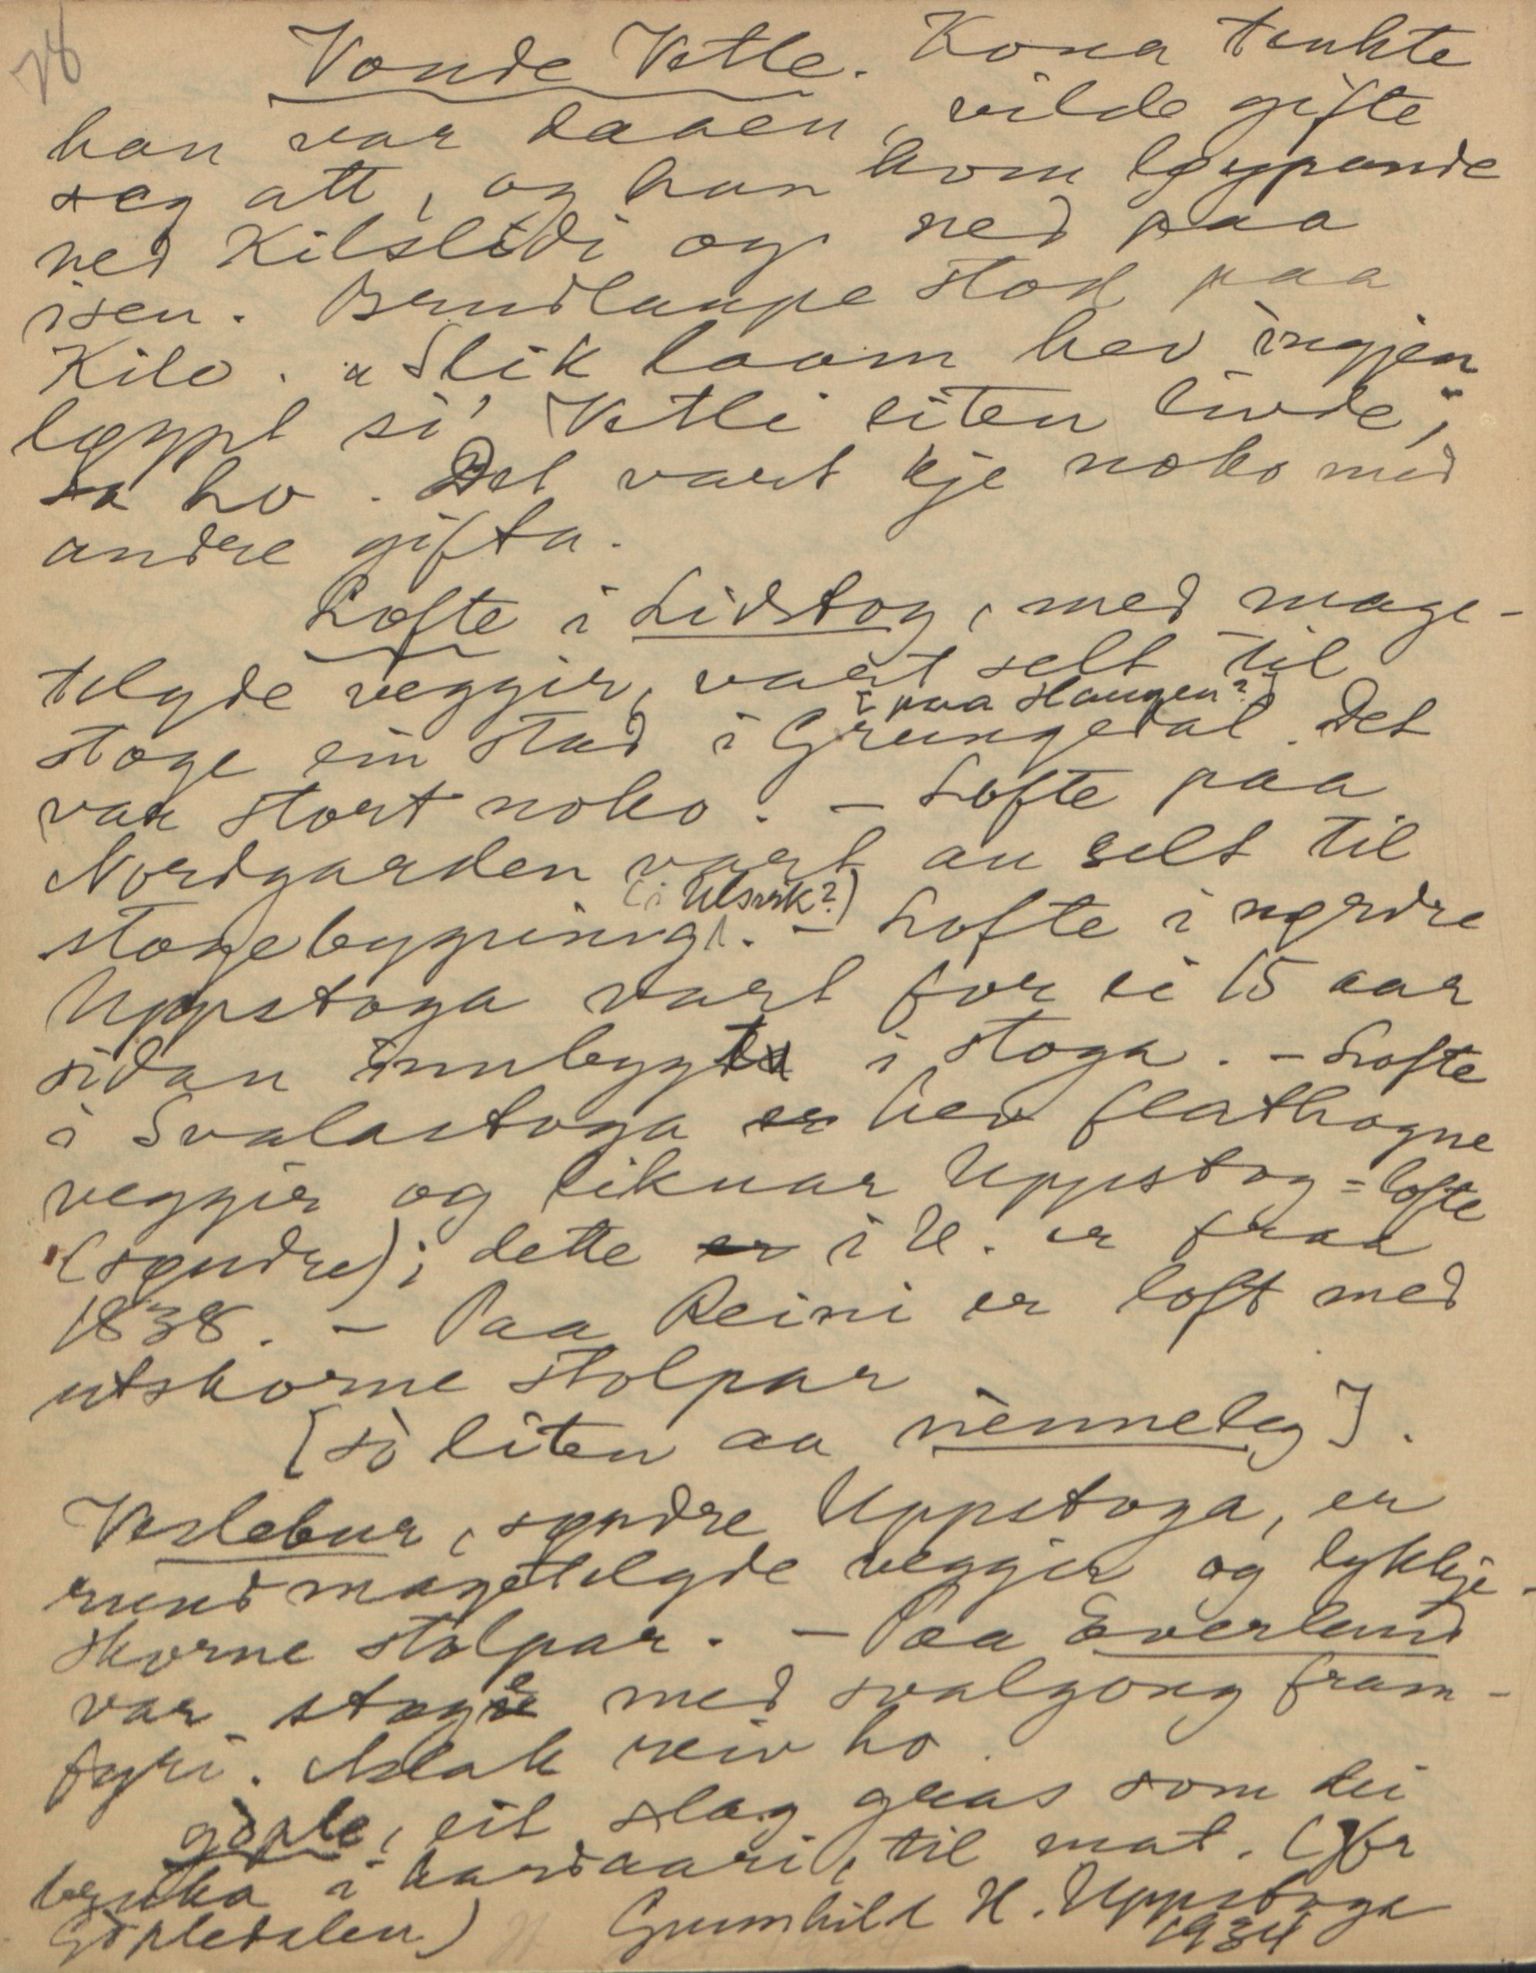 78
Vonde Vetle. Kona tenkte
han var daaen, vilde gifte
seg att, og han kom løypande
ned Kilslidi og ned paa
isen. Brudlaupe stod paa
Kile. "Slik laam hev ingjen
løypt si' Vetli liten livde",
sa ho. Det vart kje noko med
andre gifta.
Lofte i Lidstog, med mage-
telgde veggir, vart selt til
i paa Haugen?
stoge ein stad i Grungedal. Det
var stort noko. - Lofte paa
Nordgarden vart au selt til
(i Ulsvik?)
stogebygning. - Lofte i nørdre
Uppstoga vart for ei 15 aar
sidan innbygt i stoga. - Lofte
i Svalastoga er hev flathogne
veggir og liknar Uppstog=lofte
(søndre); dette er i U. er fraa
1838. - Paa Reini er loft med
utskorne stolpar
[so liten aa nenneleg].
Veslebur, søndre Uppstoga, er
rundmagetelgde veggir og lyklje-
skorne stolpar. - Paa Overland
var stoge med svalgong fram-
fyri. Aslak reiv ho.
gople, eit slag gras som dei
bruka i hardaari, til mat. (Jfr
Gopledalen) Gunnhild H. Uppstoga
1934